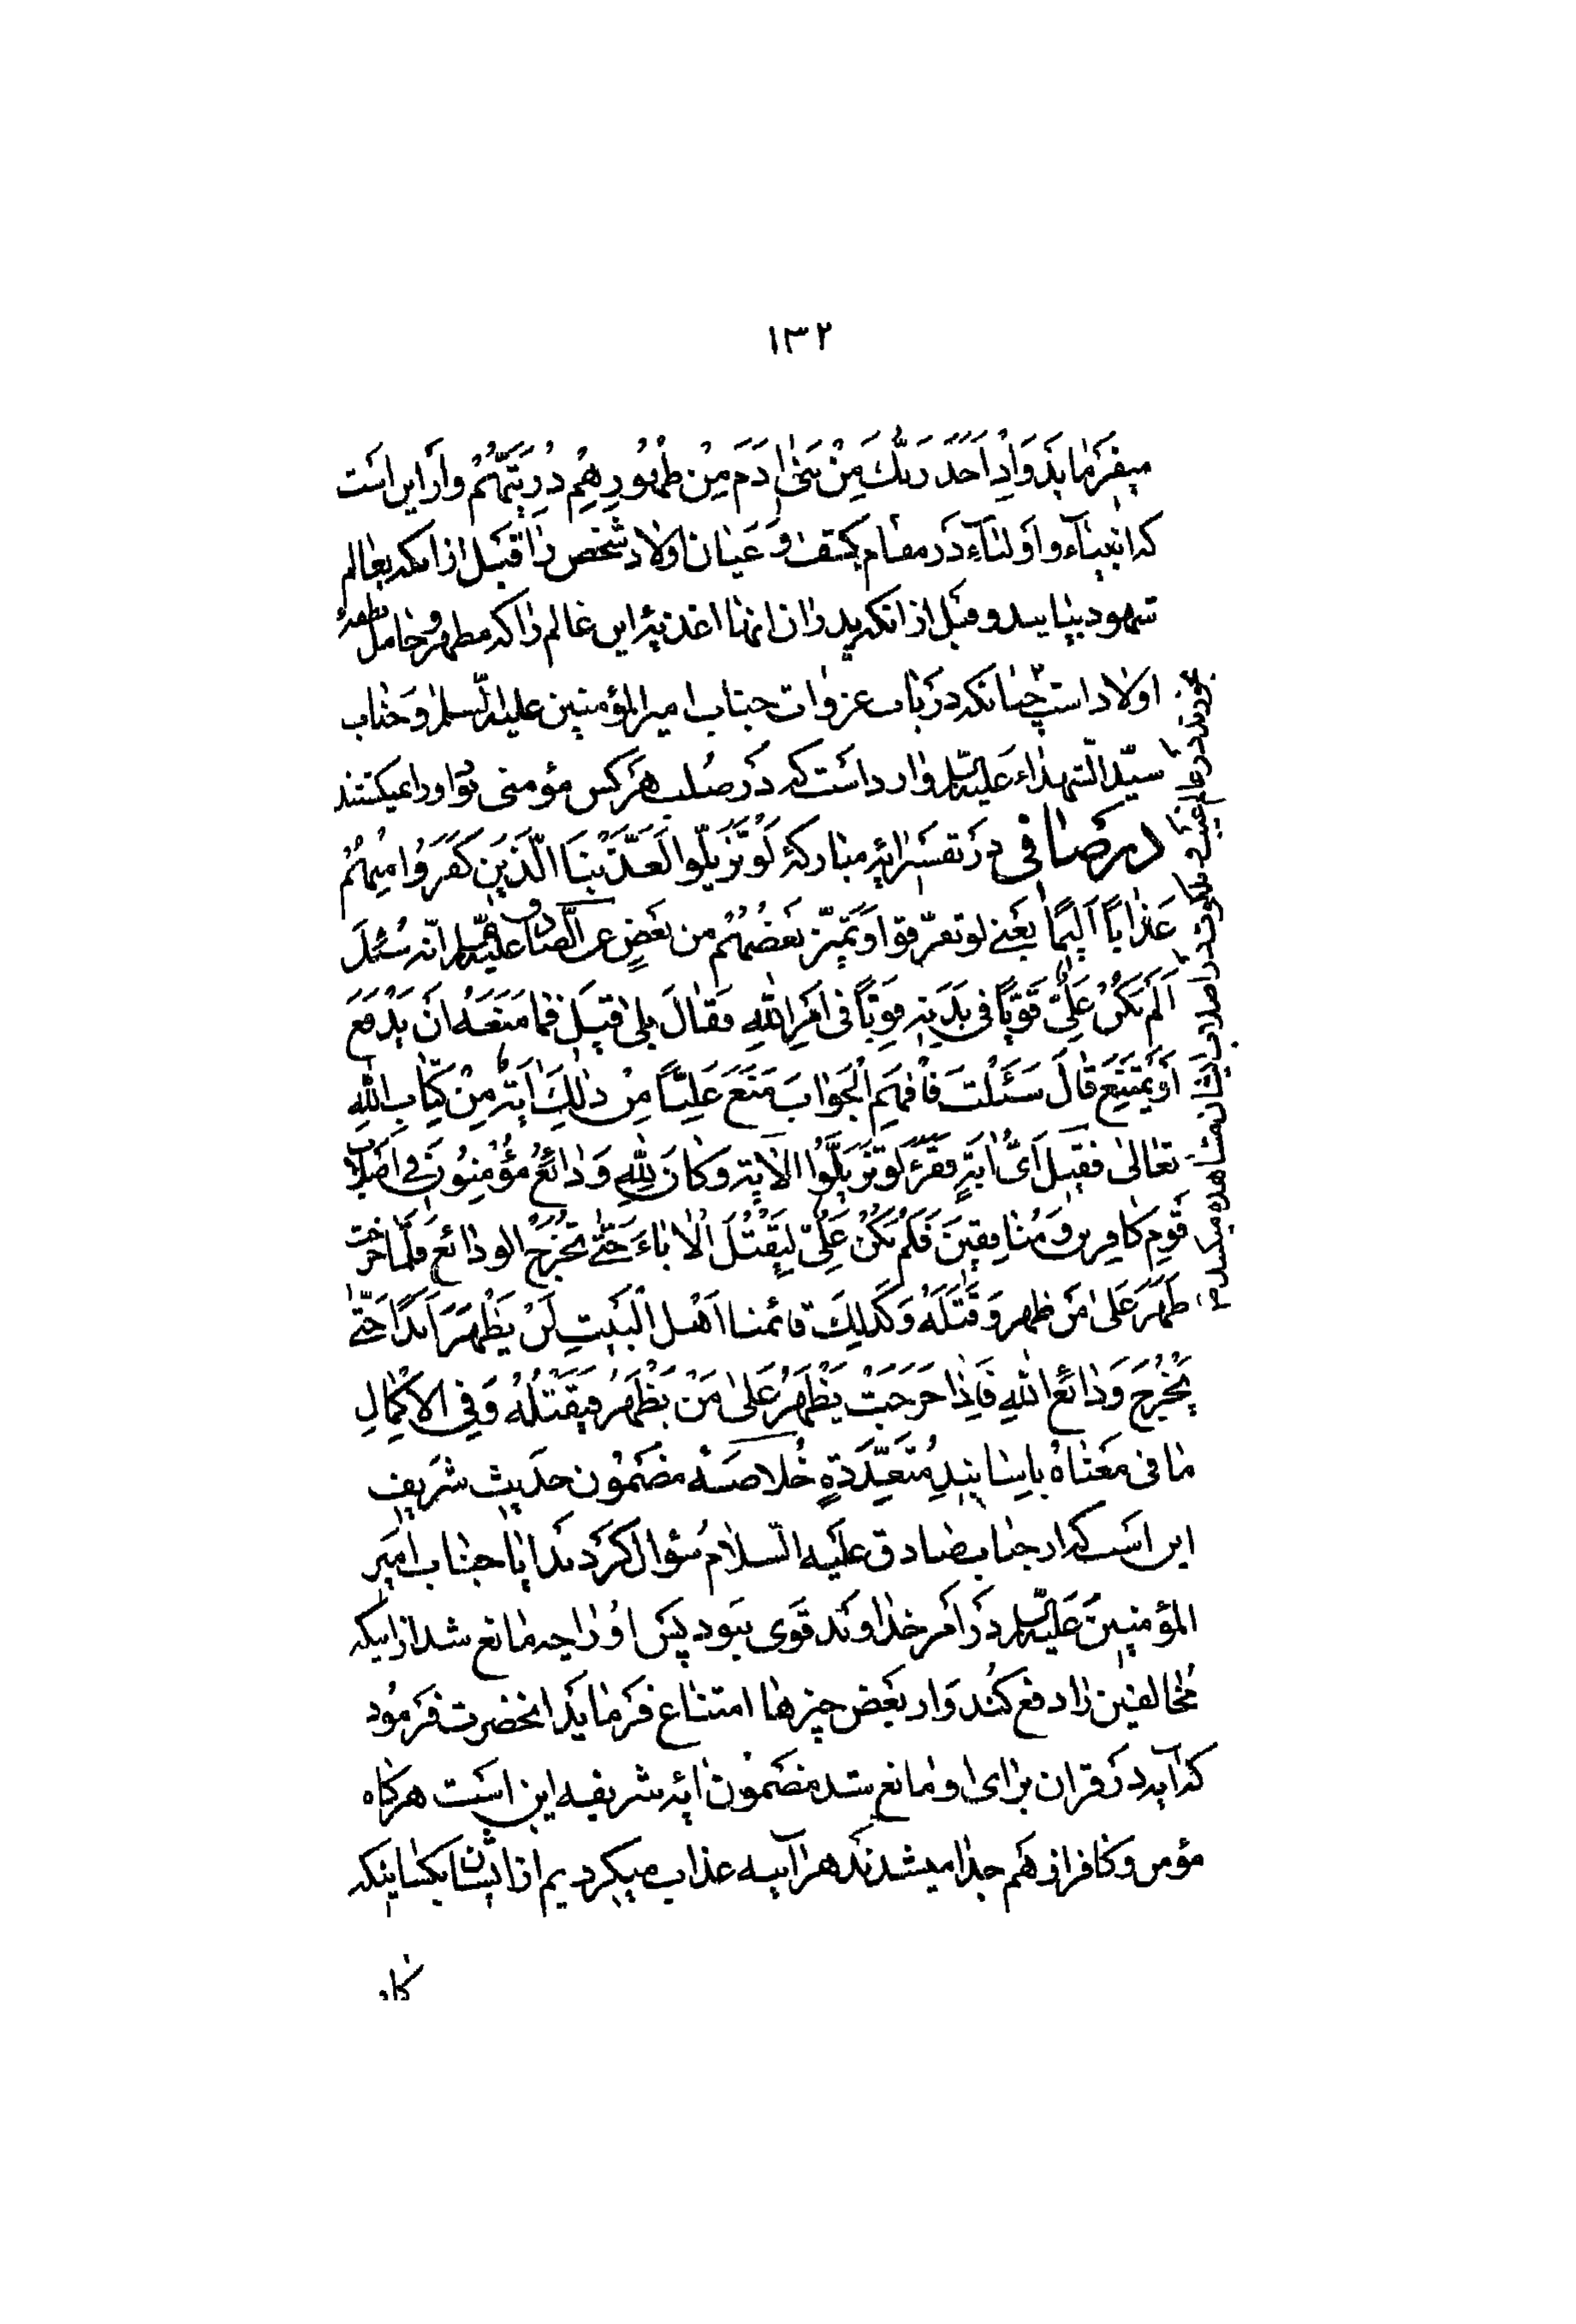 ۱۳۲
میفرماید وَاِذْ اَخَذَ رَبُّكَ مِنْ بَنی اٰدَمَ مِنْ ظُهُورِهِمْ ذُرِّیَّتَهُمْ واز این است
که انبیاء و اولیاء در مقام کشف و عیان اولاد شخص را قبل از انکه بعالم
شهود بیایند و قبل از انکه پدران انها اغذیه این عالم را که مطهر و حامل نطفه
اولاد است چنانکه در باب غزوات جناب امیرالمؤمنین علیه السلم و جناب
سیّد الشهداء علیه السلم وارد است که در صلب هرکس مؤمنی بود او را نمیکشتند
در صافی در تفسیر ایه مبارکه لَوْ تَزَیَّلُوا لَعَذَّبْنَا الَّذینَ کَفَرُوا مِنْهُمْ
عَذٰاباً اَلیماً یعنی لو تفرّقوا و تمیّز بعضهم من بعض عن الصادق علیه السلم انّه سُئِلَ
اَلَمْ یَکُنْ عَلِیٌّ قَوِیّاً فی بَدَنِهِ قَوِیّاً فی اَمْرِ اللهِ فَقٰالَ بلی قیل فما مَنَعَهُ اَنْ یَدْفَعَ
اَوْ یَمْتَنِعَ قٰالَ سَئَلْتَ فَافْهَمِ الْجَوٰابَ مَنَعَ عَلِیّاً مِنْ ذٰلِكَ اٰیَةٌ مِنْ کِتٰابِ اللهِ
تعالی فقیل اَیُّ اٰیَةٍ فَقَرَءَ لَوْ تَزَیَّلُوا الاٰیة و کٰانَ لِلّٰهِ وَدٰائِعُ مُؤْمِنُونَ فی اصلاب
قَوْمٍ کٰافِرینَ وَ مُنٰافِقینَ فَلَمْ یَکُنْ عَلِیٌّ لِیَقْتُلَ الْاٰبٰاءَ حَتّٰی تَخْرُجَ الودٰائع فلمّا خرجت
ظَهَرَ عَلیٰ مَنْ ظهر وَ قَتَلَهُ وَ کَذٰلِكَ قائمنا اَهْلَ الْبَیْتِ لَنْ یَظْهَرَ اَبَداً حَتّٰی
یَخْرُجَ وَدٰائِعُ اللهِ فَاِذٰا خَرَجَتْ یَظْهَرُ عَلیٰ مَنْ یَظْهَرُ فَیَقْتُلُهُ وَ فِی الْاِکْمٰالِ
مٰا فی مَعْنٰاهُ بِاَسٰانیدِ مُتَعَدِّدَةٍ خُلاصه مضمون حدیث شریف
این است که از جناب صادق علیه السلام سؤال کردند ایا جناب امیر
المؤمنین علیه السلم در امر خداوند قوی نبود پس او را چه مانع شد از اینکه
مخالفین را دفع کند و از بعض چیزها امتناع فرماید انحضرت فرمود
که آیه در قران برای او مانع شد مضمون ایه شریفه این است هرگاه
مؤمن و کافر از هم جدا میشدند هرآینه عذاب میکردیم از ایشان کسانیکه
کافر
بخورند در عالم غیب و ملکوت در اصلاب ایشان مشاهده میکنند م